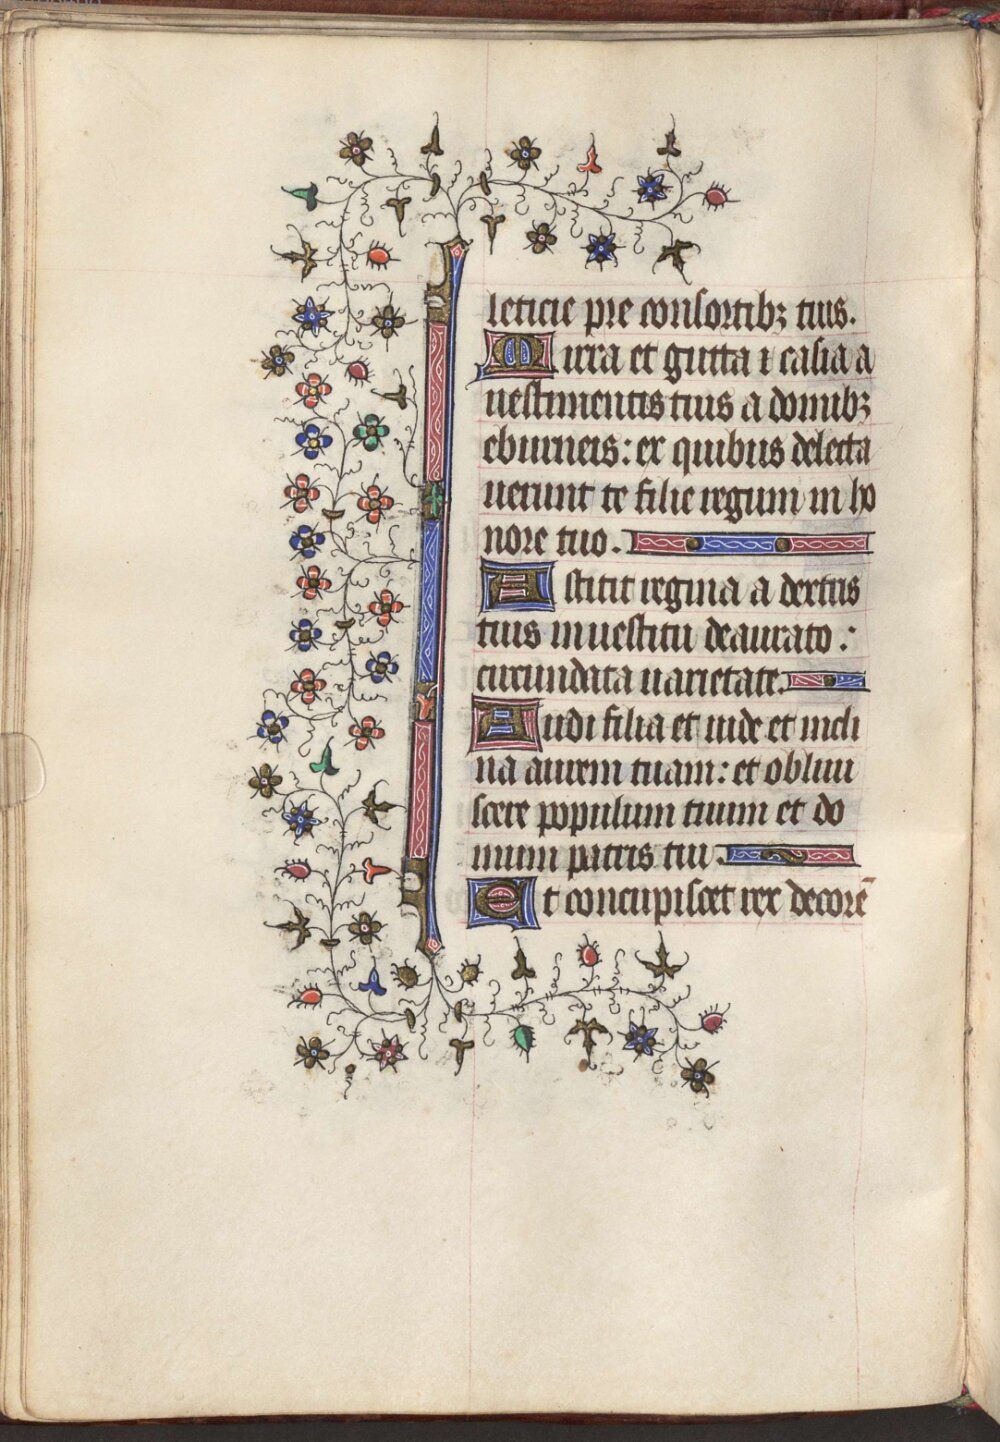 leticie pre consortibz tuis.
Mirra et gutta ⁊ casia a
uestimentis tuis a domibz
eburneis: ex quibus delecta
uerunt te filie regum in ho
nore tuo.
Astitit regina a dextris
tuis in uestitu deaurato:
circundata uarietate.
Audi filia et uide et incli
na aurem tuam: et obliui
scere populum tuum et do
mum patris tui.
Et concupiscet rex decorē